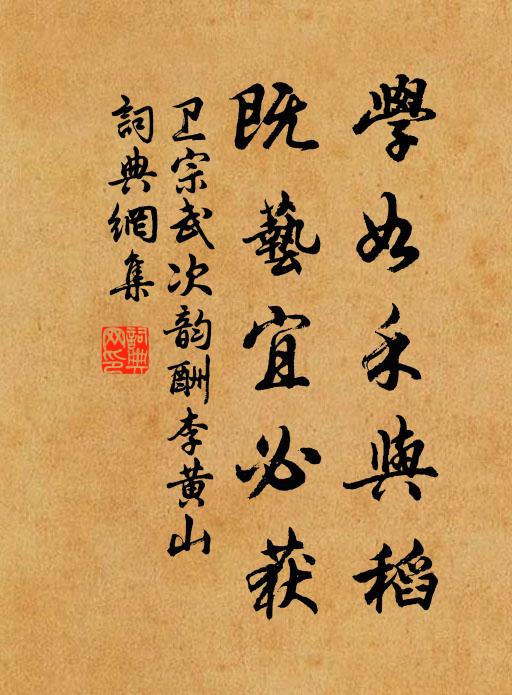 學如禾與稻
既藝宜必获
卫宗武次韵酬李黄山
詞典網集
詞典网印